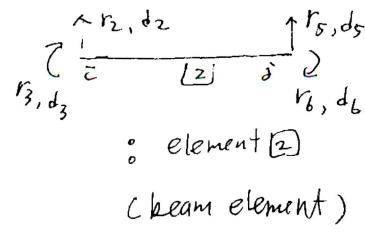 r2, d2
r5, d5
i
[2]
j
r3, d3
r6, d6
: element [2]
(beam element)